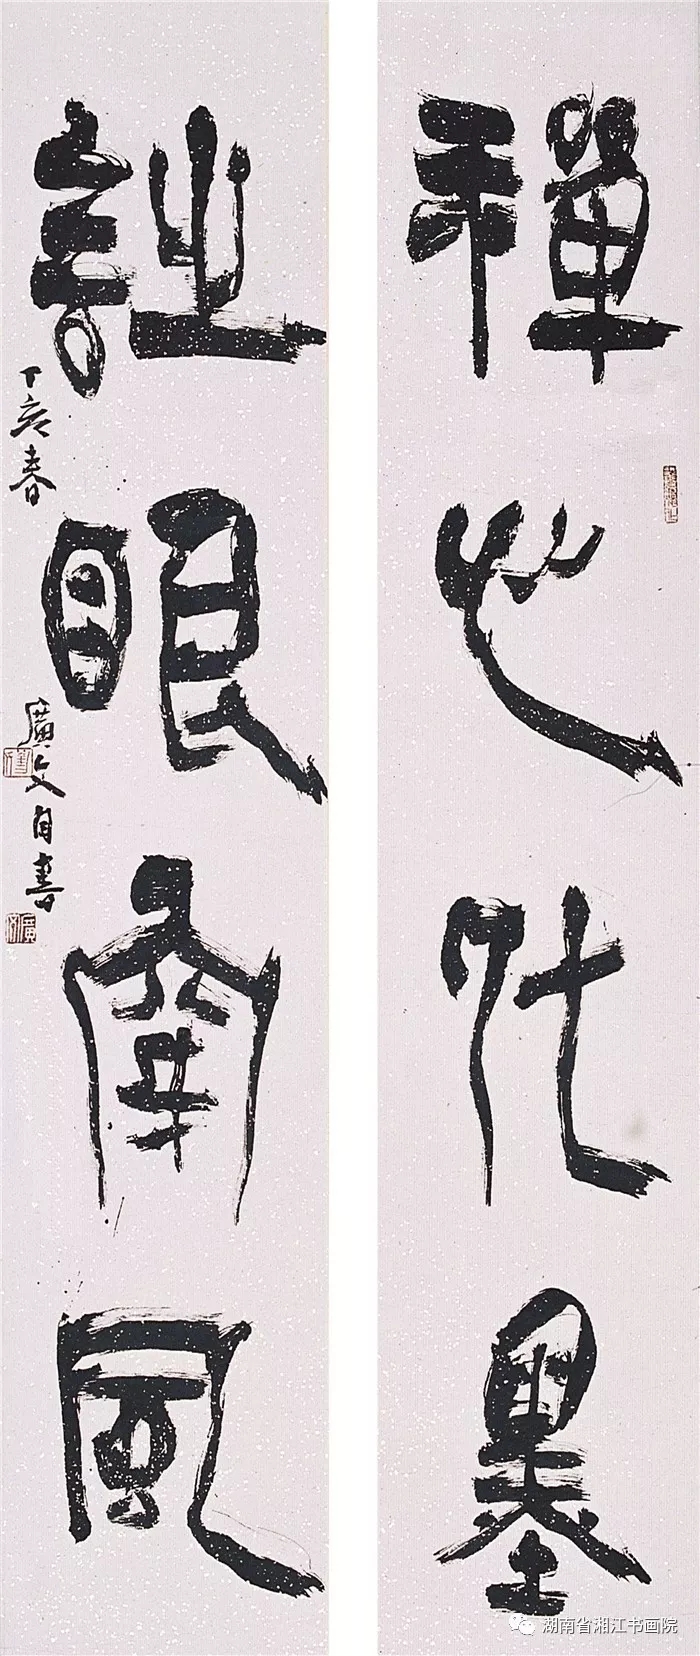 禪心北墨
詩眼南風
丁亥春 廣文自書
湖南省湘江书画院